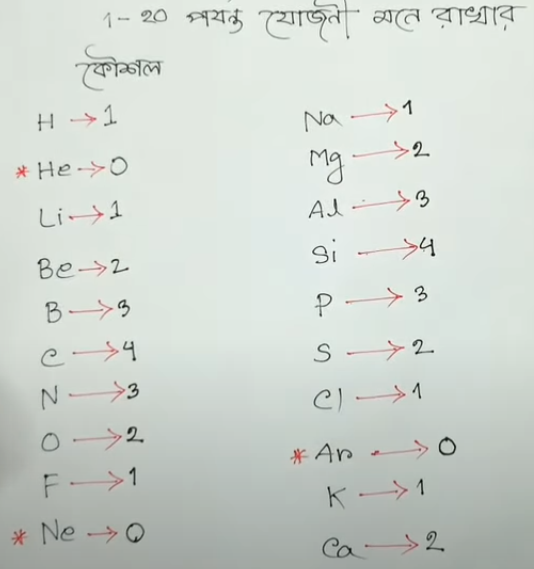 1-20 পর্যন্ত যোজনী মনে রাখার
কৌশল
H → 1
* He → 0
Li → 1
Be → 2
B → 3
C → 4
N → 3
O → 2
F → 1
* Ne → 0
Na → 1
Mg → 2
Al → 3
Si → 4
P → 3
S → 2
Cl → 1
* Ar → 0
K → 1
Ca → 2